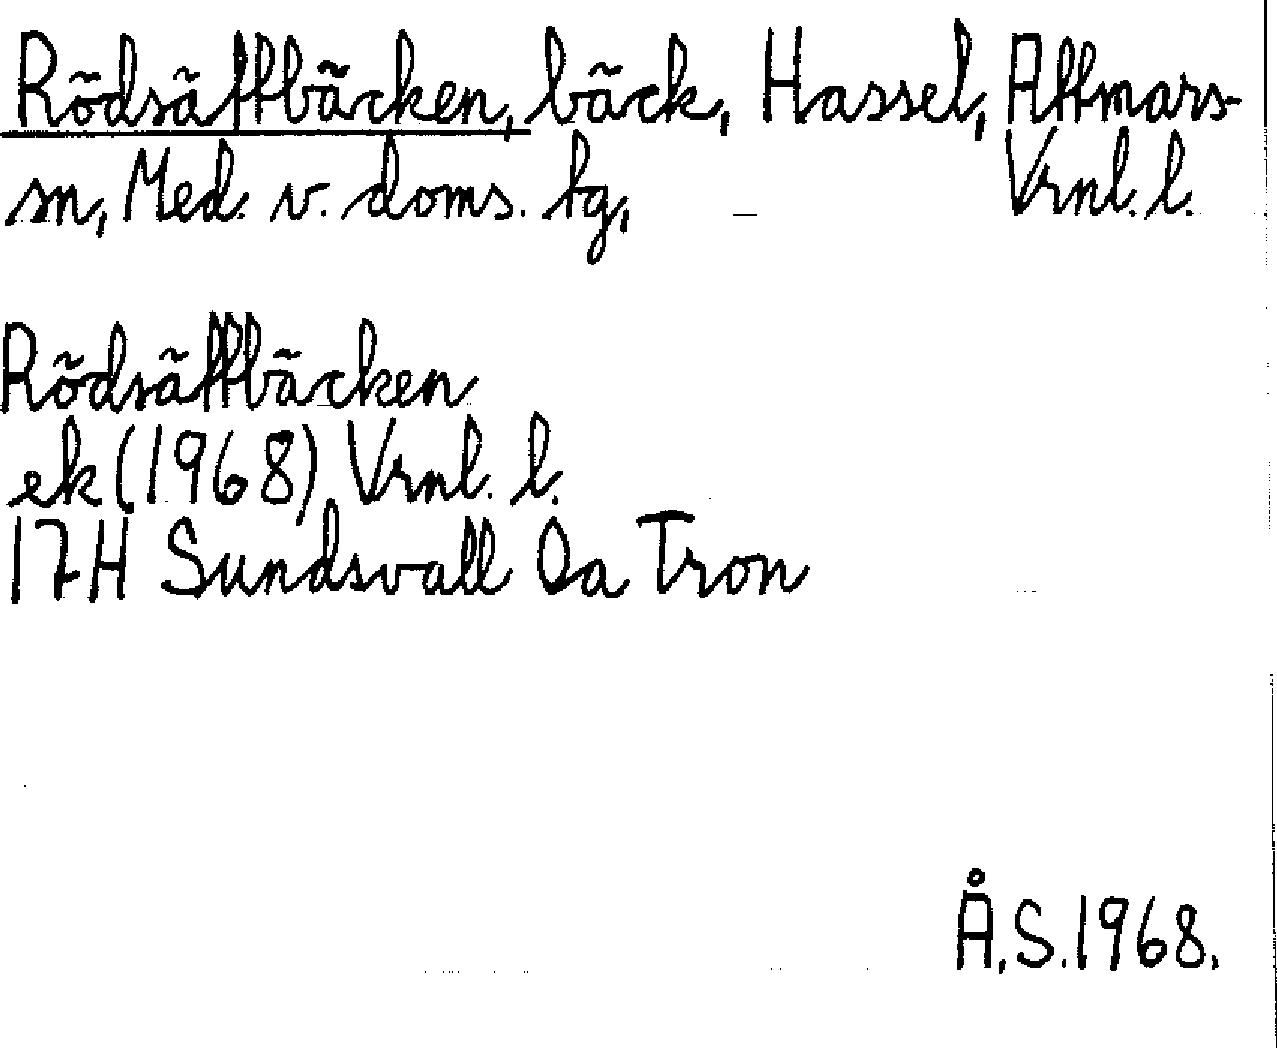 Rödsättbäcken, bäck, Hassel, Attmars-
sn, Med. v. doms. tg, Vrnl. l.
Rödsättbäcken
ek (1968) Vrnl. l.
17H Sundsvall 0a Tron
Å.S. 1968.